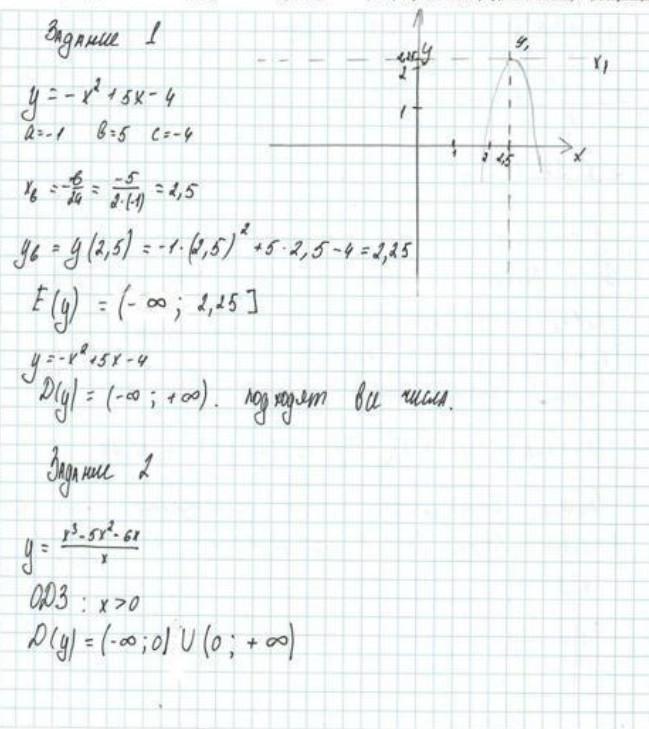 Задание 1
y = -x² + 5x - 4
a=-1 b=5 c=-4
xв = -в/2a = -5/2·(-1) = 2,5
yв = y(2,5) = -1·(2,5)² + 5·2,5 - 4 = 2,25
E(y) = (-∞; 2,25]
y = -x² + 5x - 4
D(y) = (-∞; +∞). подходят все числа.
y
y₁
x₁
2,25
2
1
1 2 2,5 x
Задание 2
y = x³ - 5x² - 6x/x
ОДЗ : x > 0
D(y) = (-∞; 0) U (0; +∞)